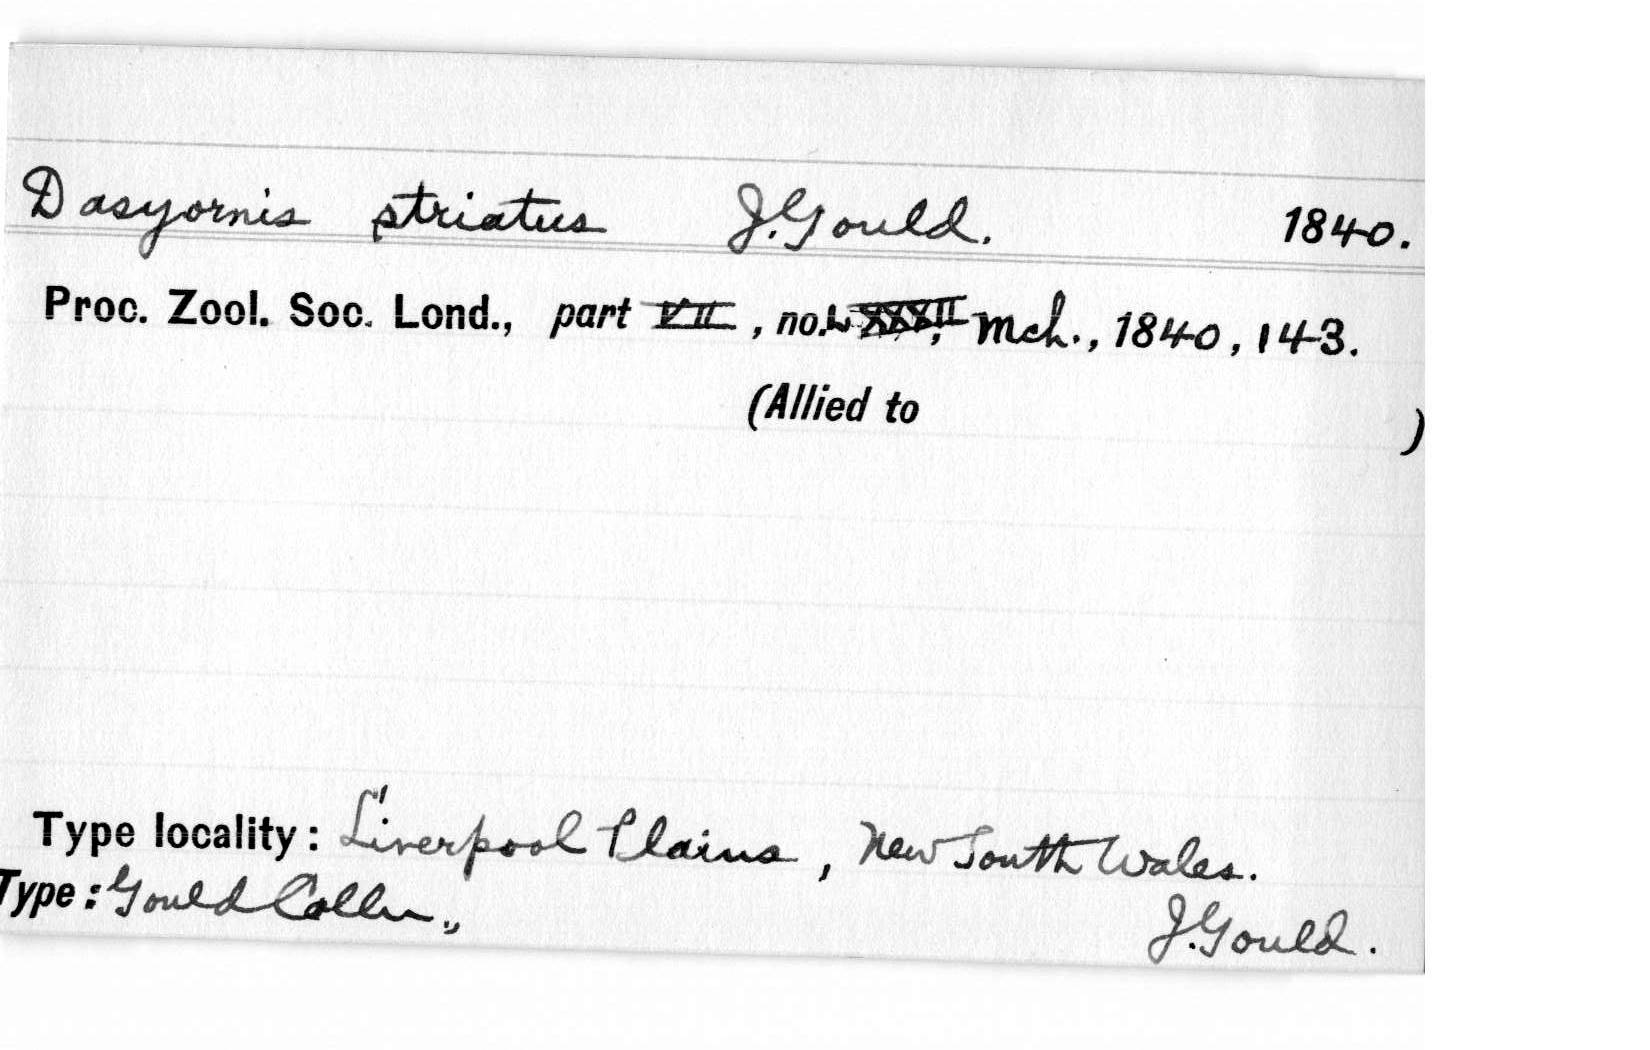 Dasyornis striatus J. Gould. 1840.
Proc. Zool. Soc. Lond., part VII, no. LXXXII, Mch., 1840, 143.
(Allied to )
Type locality: Liverpool Plains, New South Wales.
Type: Gould Colln., J. Gould.